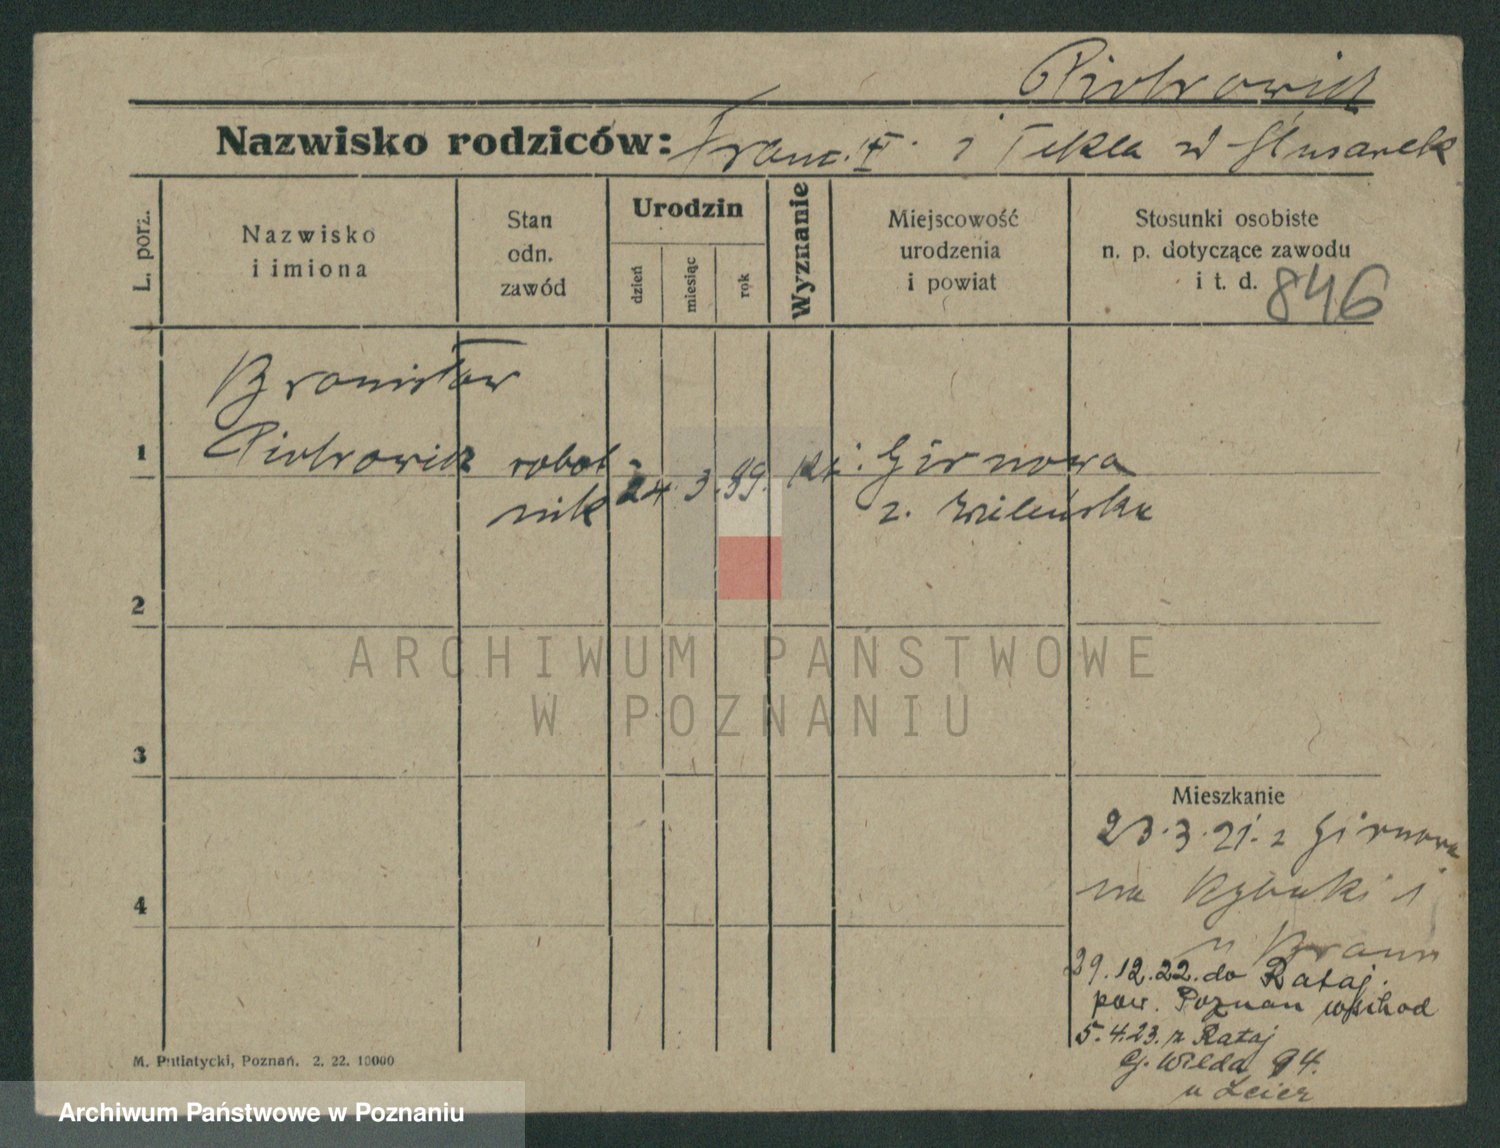 Piotrowicz
Nazwisko rodziców: Franc. † i Tekla z Ślusarek
L. porz.
Nazwisko
i imiona
Stan
odn.
zawód
Urodzin
dzień
miesiąc
rok
Wyznanie
Miejscowość
urodzenia
i powiat
Stosunki osobiste
n. p. dotyczące zawodu
i t. d.
846
Bronisław
1 Piotrowicz robot-
nik 24. 3. 99. kt. Girnowa
z. Wileńska
2
3
4
Mieszkanie
23.3.21. z Girnowa
na Rybaki 1
u Braun
29.12.22. do Rataj.
pow. Poznan wschod
5.4.23. z Rataj
G. Wilda 94.
u Leier
M. Putiatycki, Poznań. 2. 22. 10000
ARCHIWUM PAŃSTWOWE
W POZNANIU
Archiwum Państwowe w Poznaniu